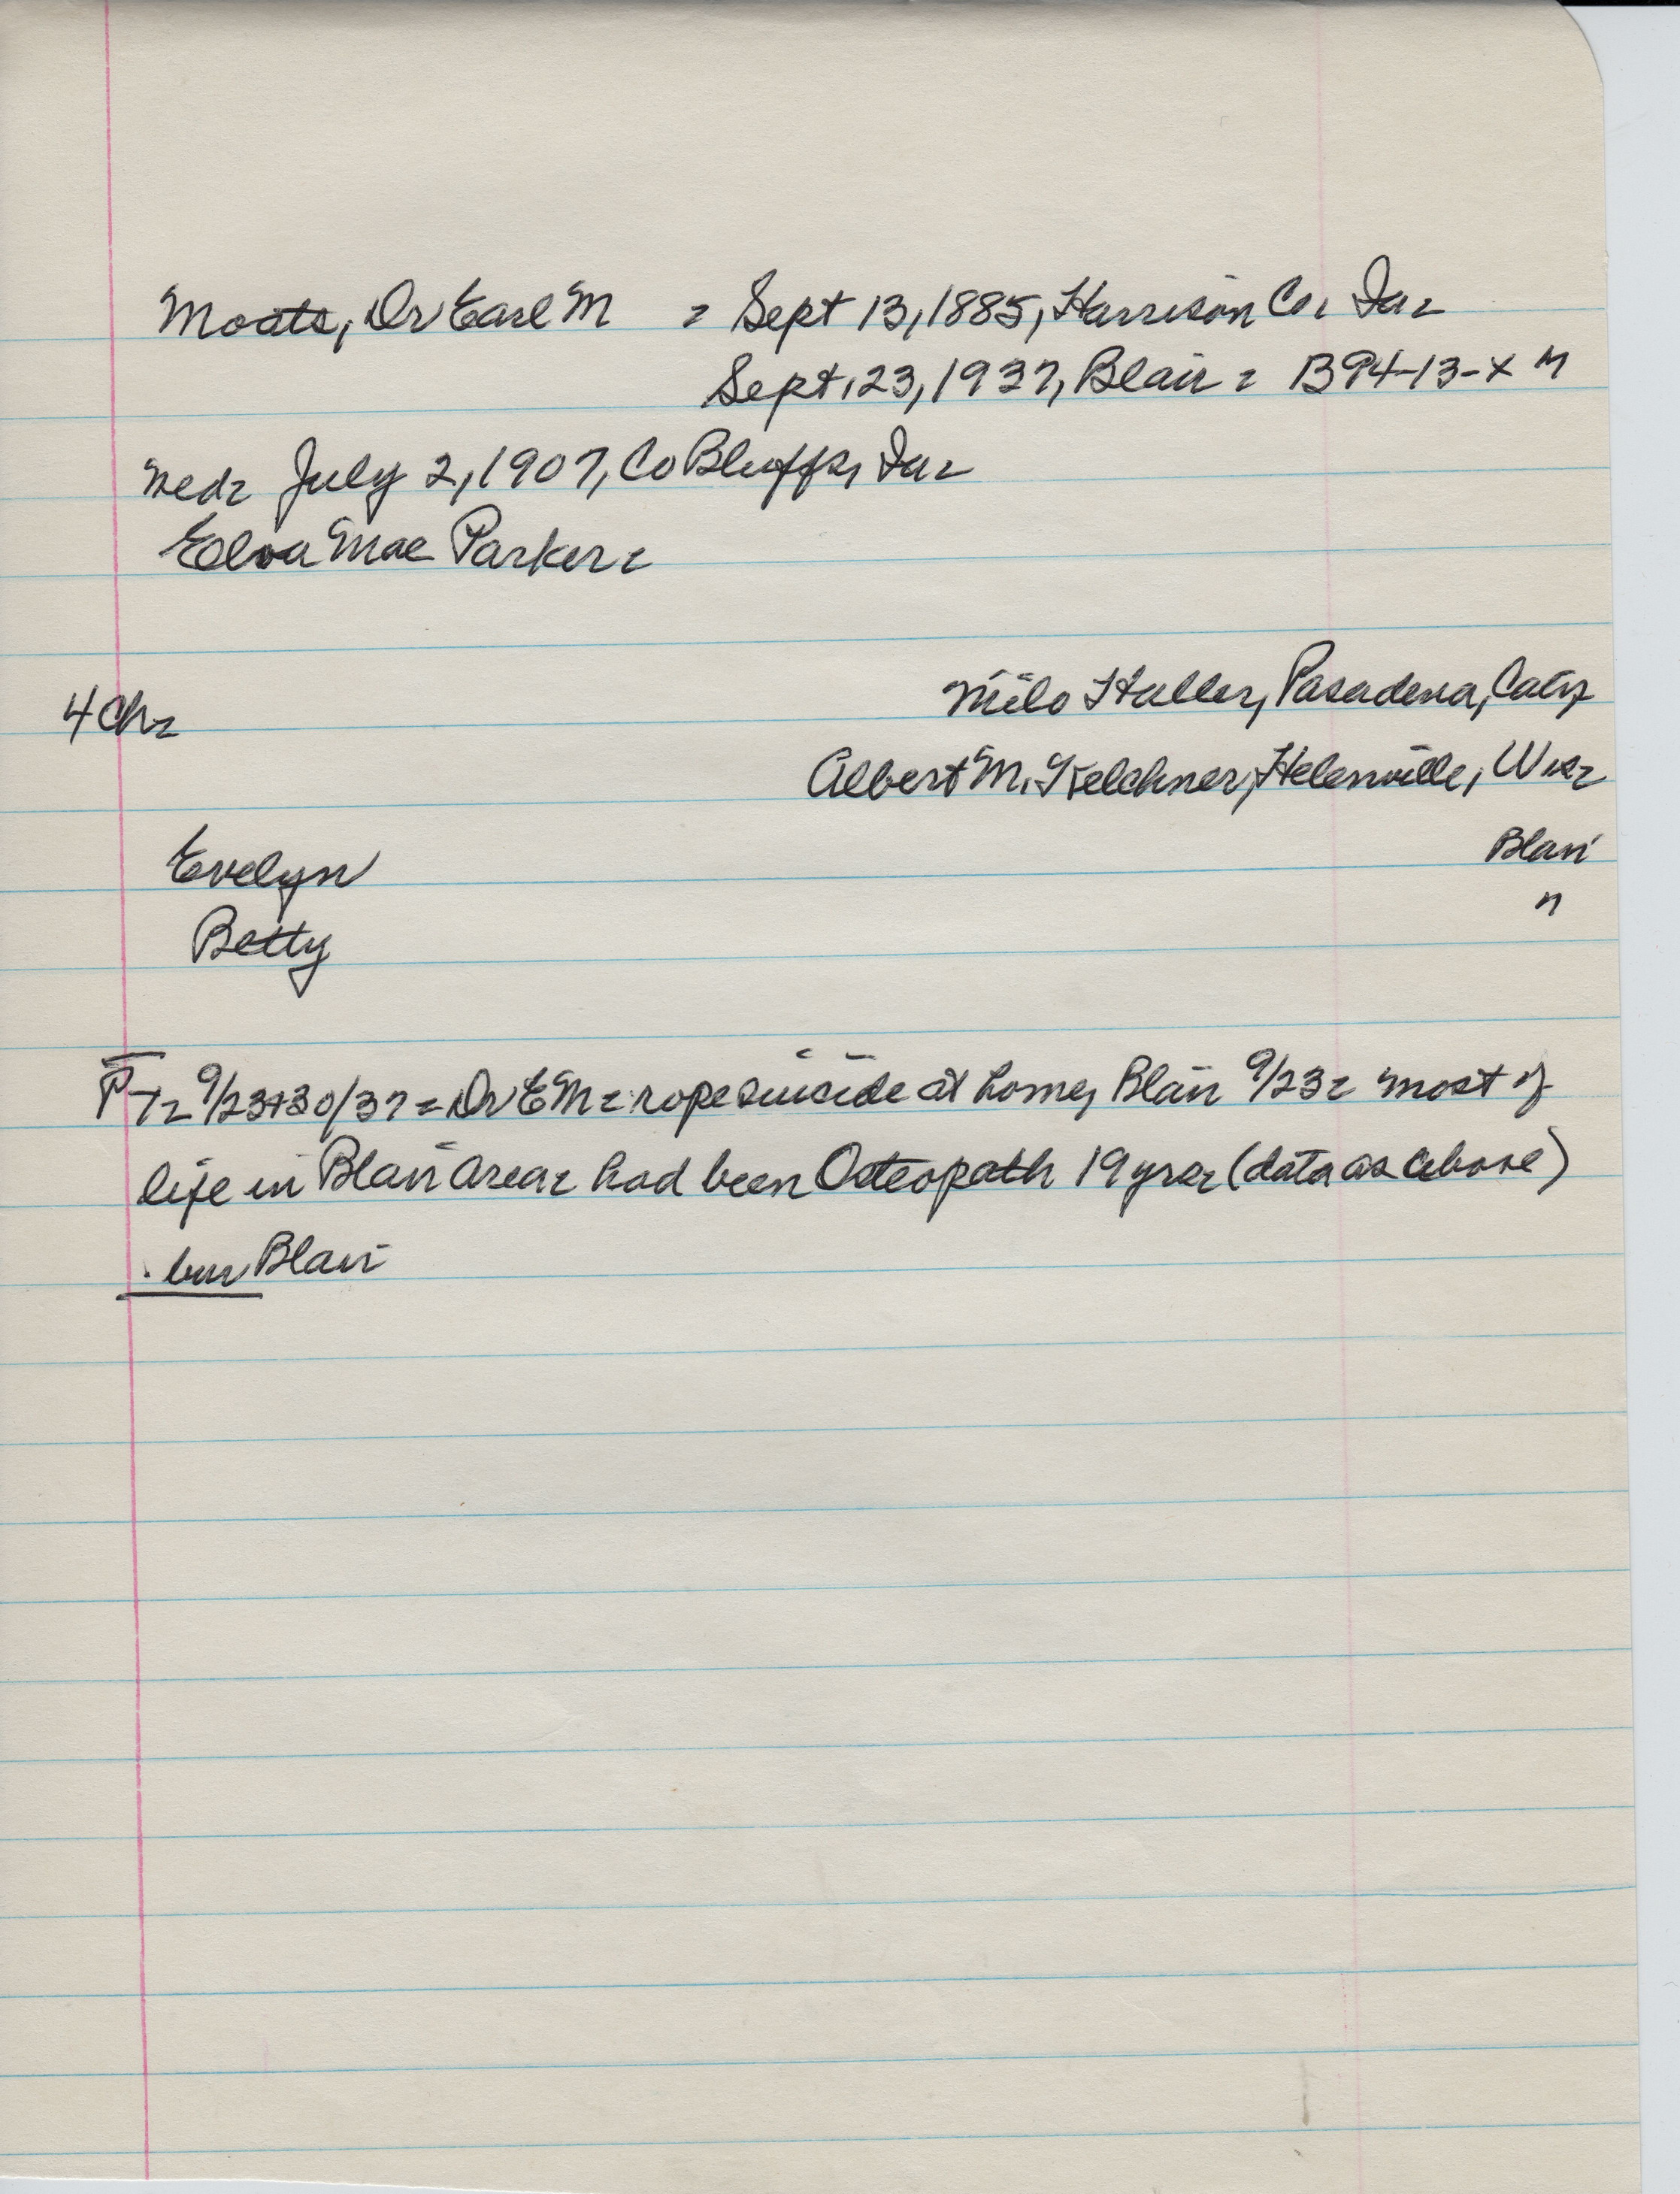 Moats, Dr Earl M = Sept 13, 1885, Harrison Co, Ia=
Sept, 23, 1937, Blair = B94-13-X M
wed= July 2, 1907, Co Bluffs, Ia=
Elva Mae Parker=
Milo Haller, Pasadena, Calif
4 Ch=
Albert M. Kelchner, Helenville, Wis=
Evelyn Blair
Betty "
PT= 9/23+30/37 = Dr EM = rope suicide at home, Blair 9/23= most of
life in Blair area= had been Osteopath 19 yrs= (data as above)
bur Blair